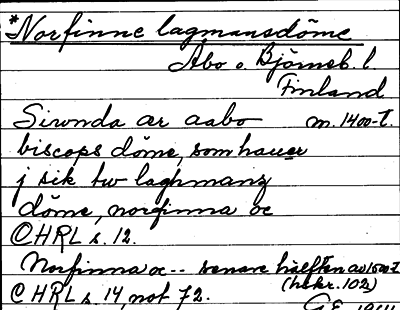 *Norfinne lagmansdöme
Åbo o. Björneb. l
Finland
Siwnda ær aabo m. 1400-t.
biscops döme, som hauer
j sik tw laghmanz
döme, norfinna oc
CHRL s. 12.
Norfinna oc -- senare hälften av 1500-t
(hskr. 102)
CHRL s. 14, not 72.
G.F. 1911